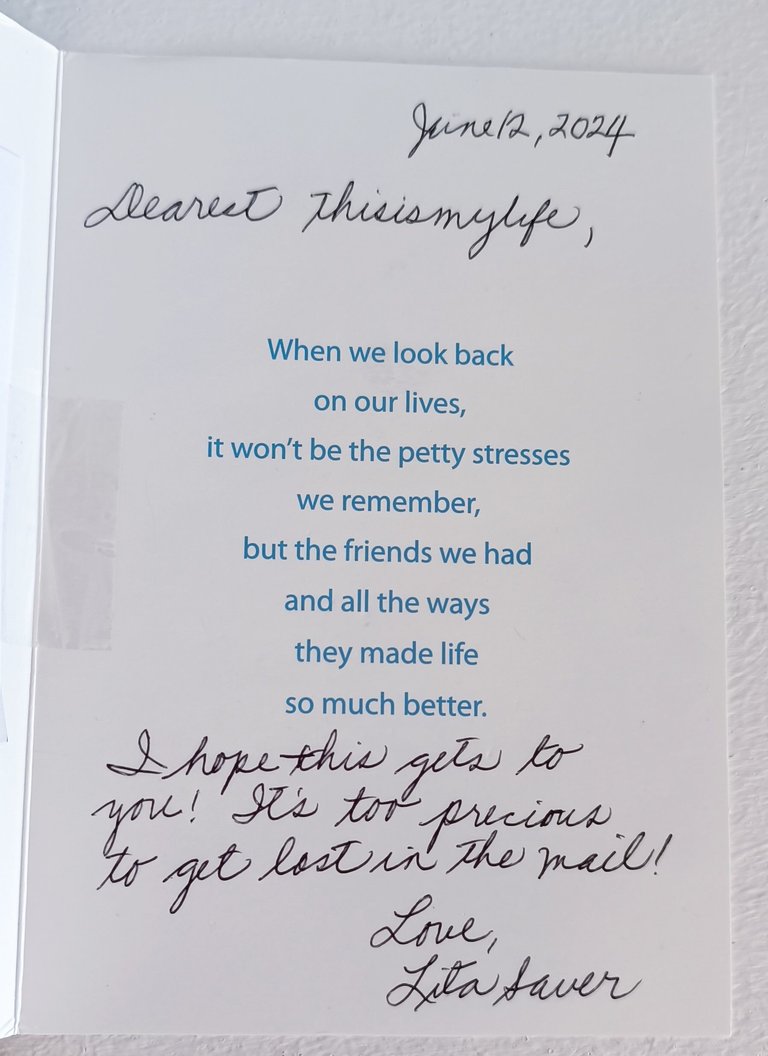 June 12, 2024
Dearest Thisismylife,
When we look back
on our lives,
it won't be the petty stresses
we remember,
but the friends we had
and all the ways
they made life
so much better.
I hope this gets to
you! It's too precious
to get lost in the mail!
Love,
Lita Saver